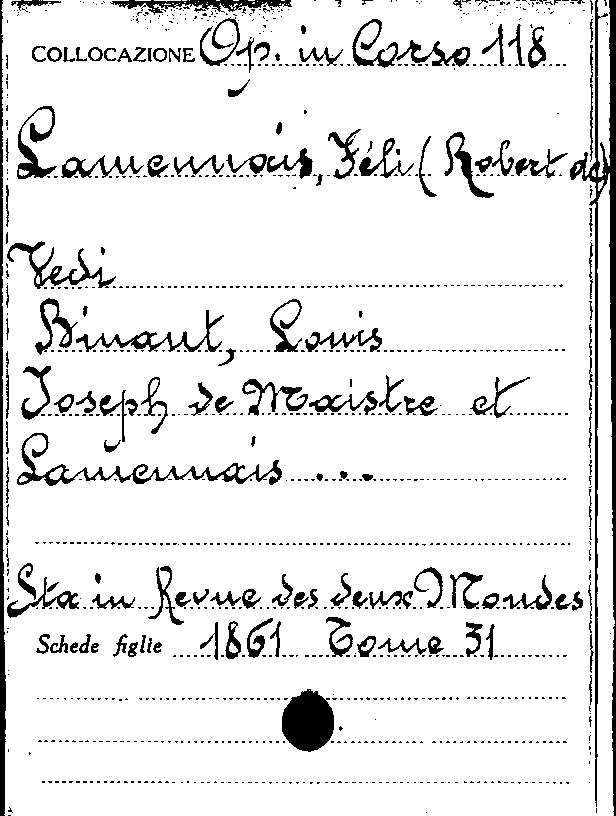 COLLOCAZIONE Op. in Corso 118
Lamennais, Féli (Robert de)
Vedi
Binaut, Louis
Joseph de Maistre et
Lamennais ...
Sta in Revue des deux Mondes
Schede figlie 1861 Tome 31